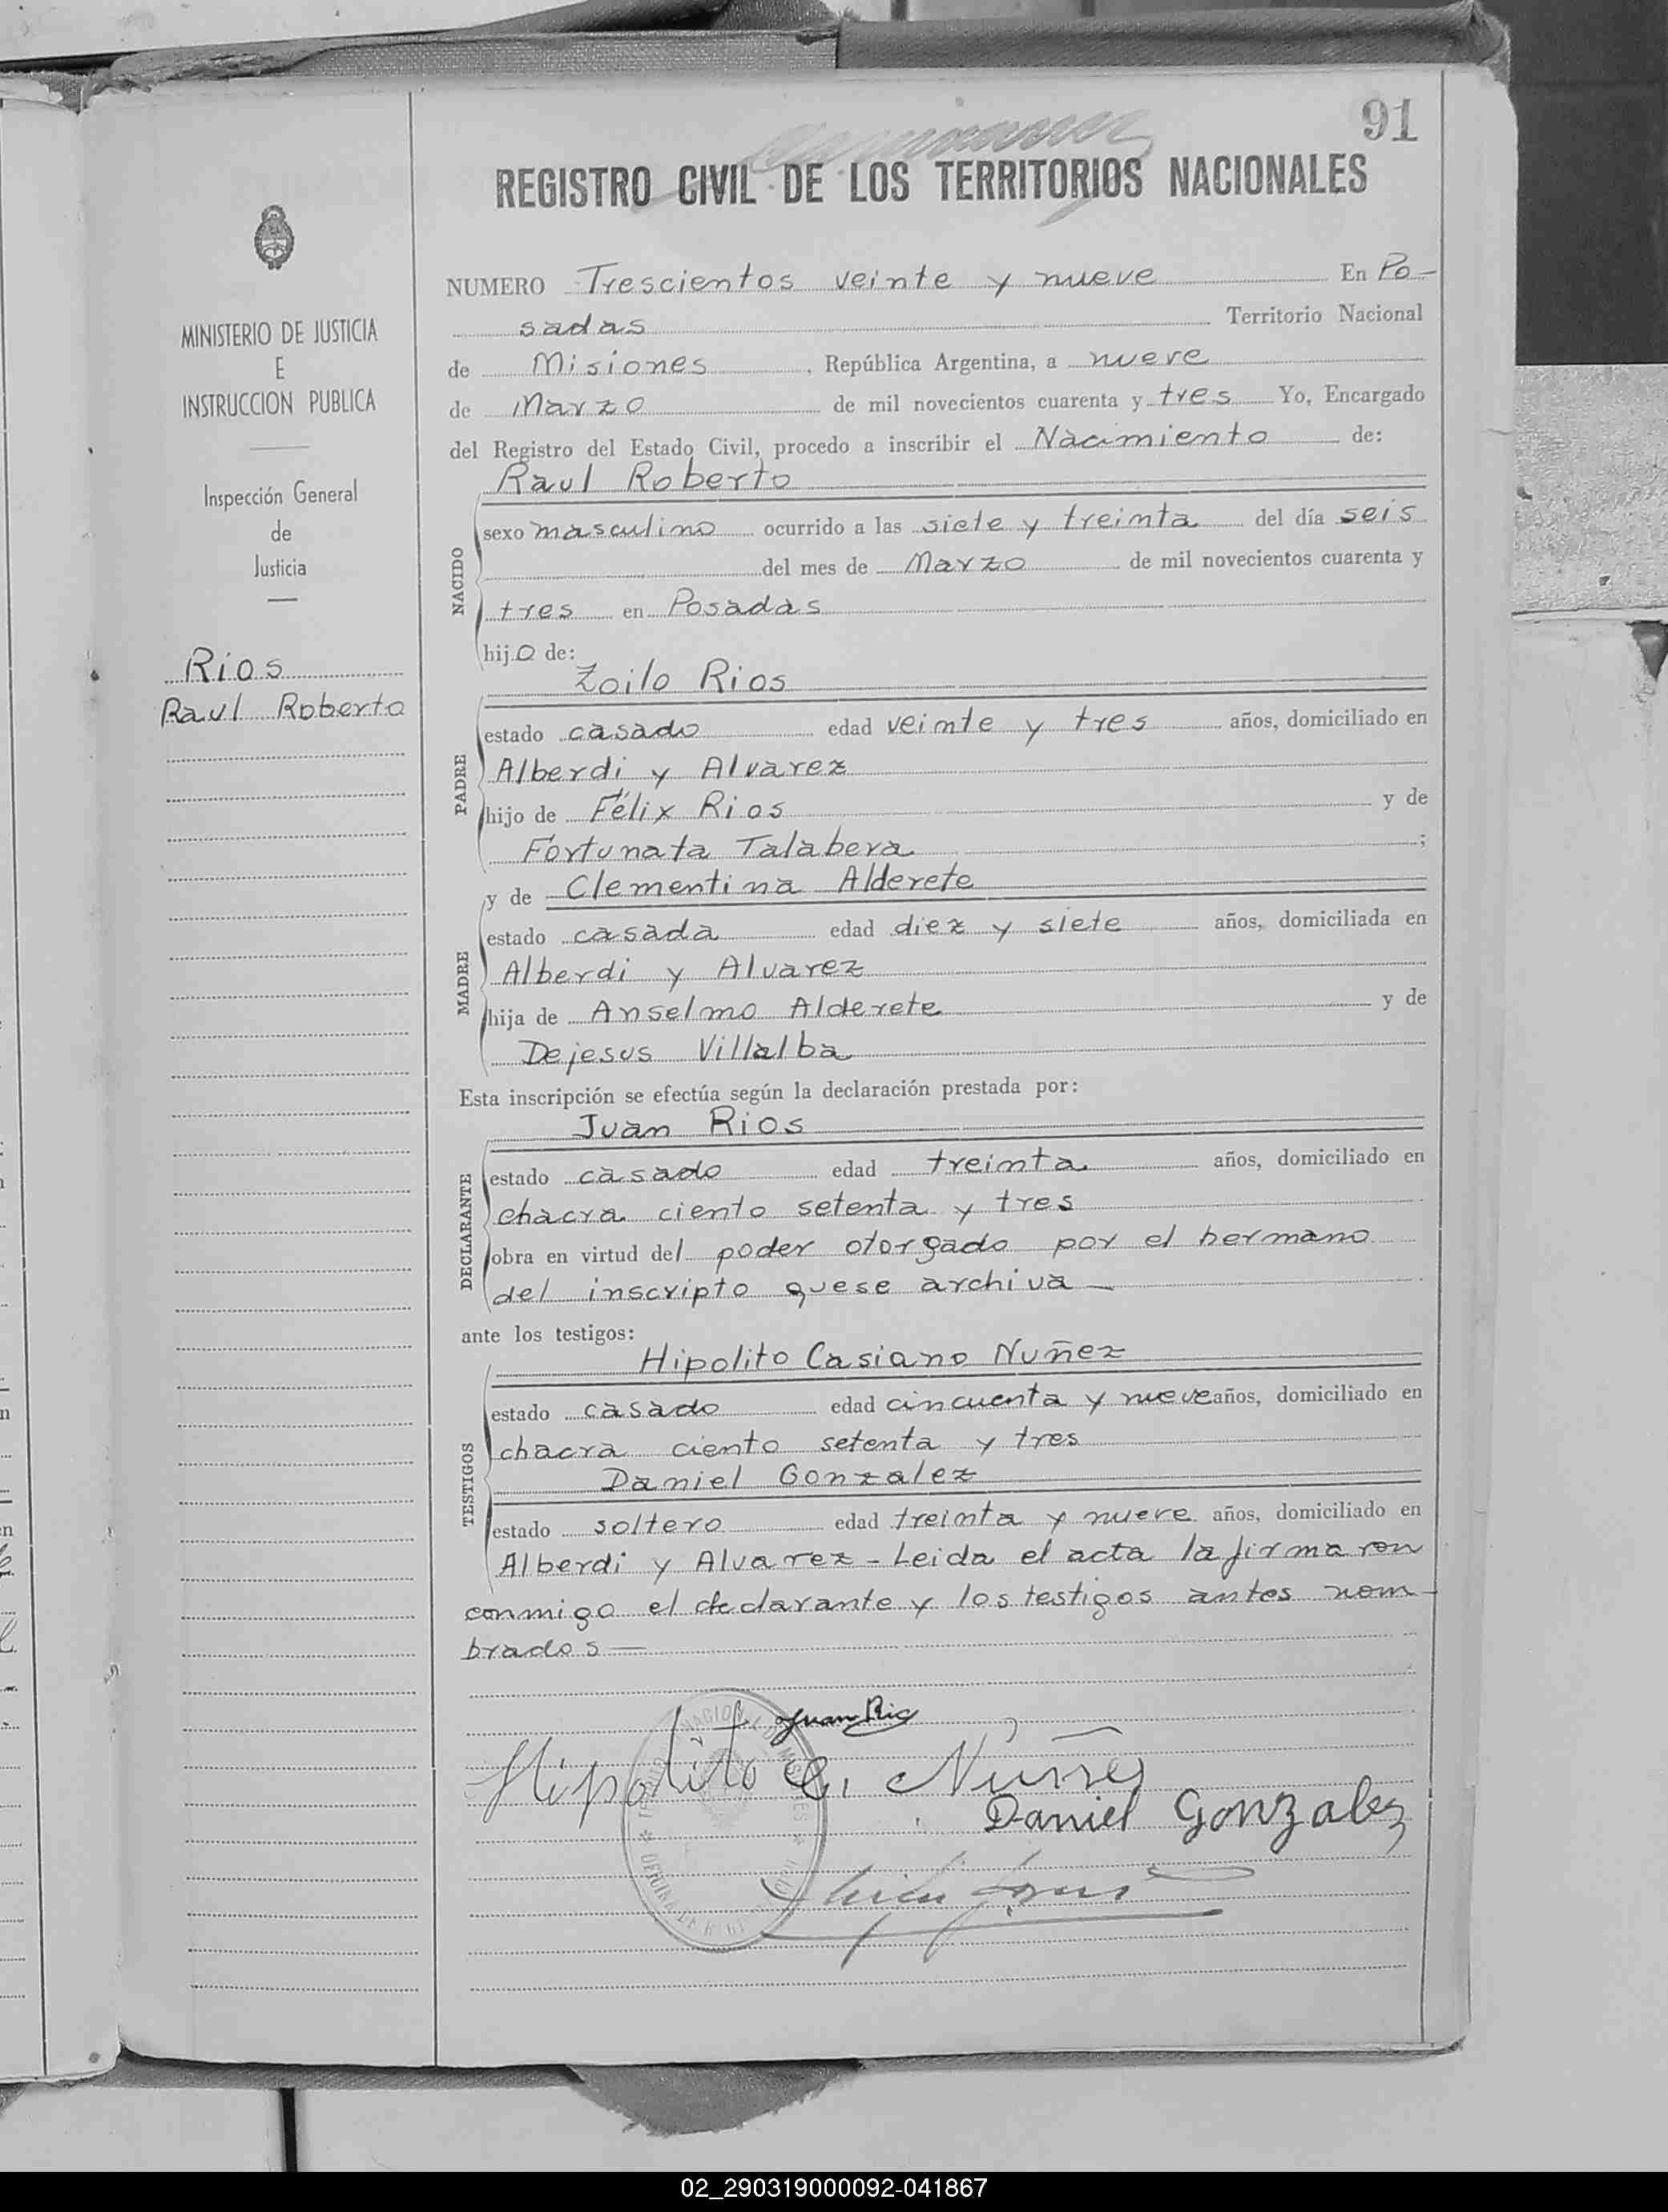 91
REGISTRO CIVIL DE LOS TERRITORIOS NACIONALES
MINISTERIO DE JUSTICIA
E
INSTRUCCION PUBLICA
Inspección General
de
Justicia
Rios
Raul Roberto
NUMERO Trescientos veinte y nueve En Po-
sadas Territorio Nacional
de Misiones, República Argentina, a nueve
de Marzo de mil novecientos cuarenta y tres Yo, Encargado
del Registro del Estado Civil, procedo a inscribir el Nacimiento de:
NACIDO
Raul Roberto
sexo masculino ocurrido a las siete y treinta del día seis
del mes de Marzo de mil novecientos cuarenta y
tres en Posadas
hijo de:
PADRE
Zoilo Rios
estado casado edad veinte y tres años, domiciliado en
Alberdi y Alvarez
hijo de Félix Rios y de
Fortunata Talabera ;
MADRE
y de Clementina Alderete
estado casada edad diez y siete años, domiciliada en
Alberdi y Alvarez
hija de Anselmo Alderete y de
Dejesus Villalba
Esta inscripción se efectúa según la declaración prestada por:
DECLARANTE
Juan Rios
estado casado edad treinta años, domiciliado en
chacra ciento setenta y tres
obra en virtud del poder otorgado por el hermano
del inscripto quese archiva —
ante los testigos:
TESTIGOS
Hipolito Casiano Nuñez
estado casado edad cincuenta y nueve años, domiciliado en
chacra ciento setenta y tres
Daniel Gonzalez
estado soltero edad treinta y nueve años, domiciliado en
Alberdi y Alvarez - Leida el acta la firmaron
conmigo el declarante y los testigos antes nom-
brados —
Juan Rios
Hipolito C. Núñez
Daniel Gonzalez
02_290319000092-041867